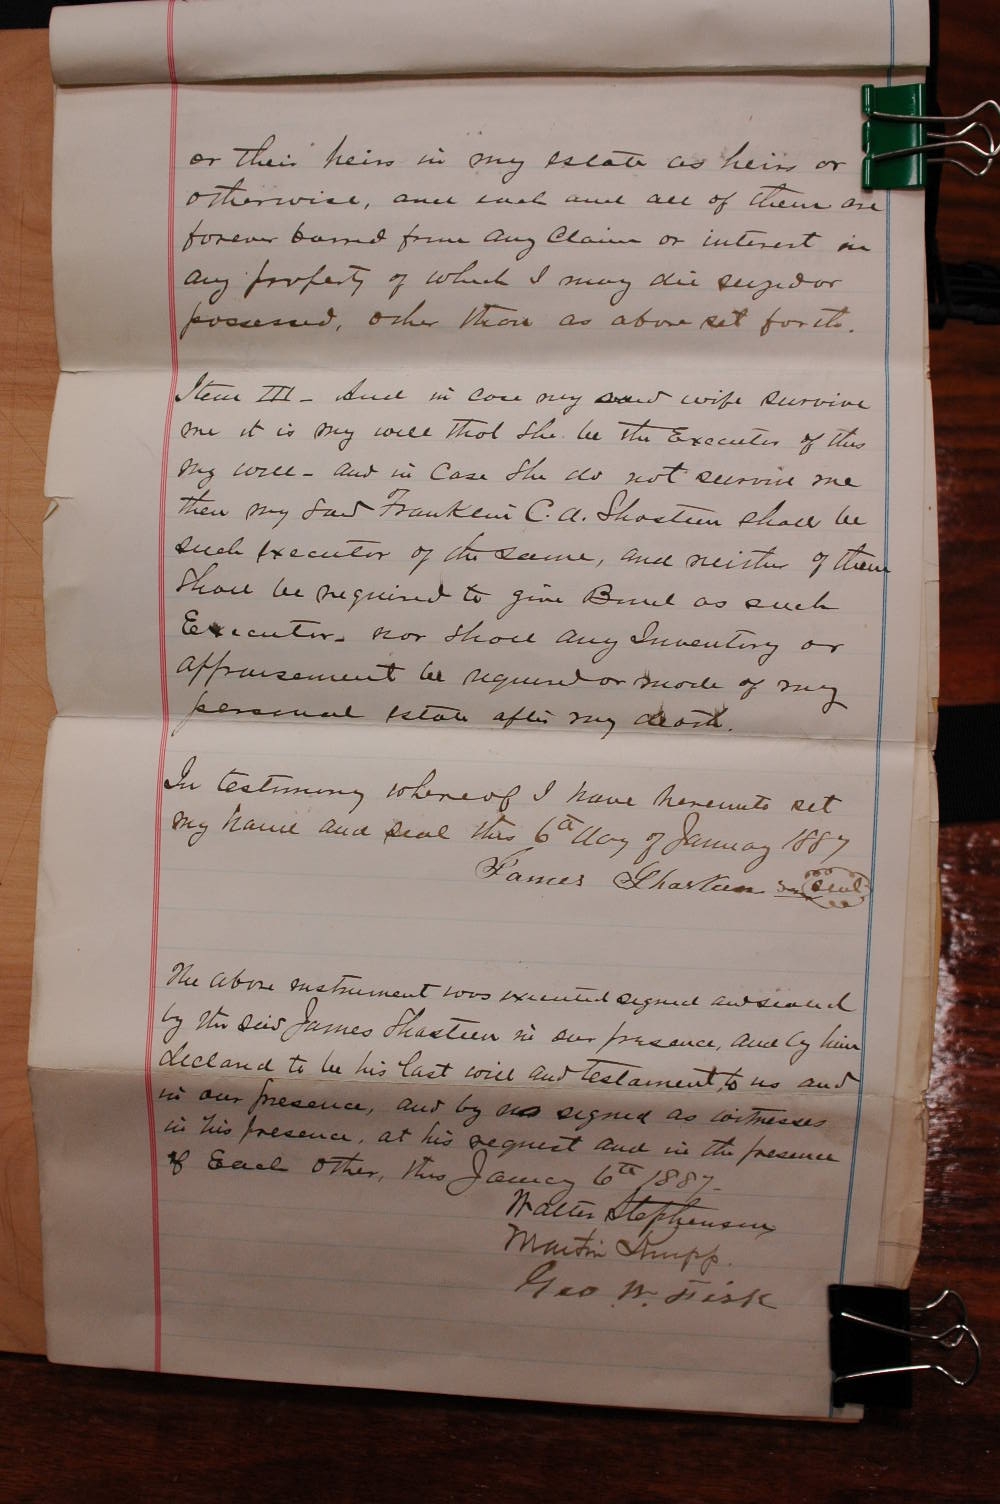 or their heirs in my estate as heirs or
otherwise, and each and all of them are
forever barred from any claim or interest in
any property of which I may die seized or
possessed, other than as above set forth.
Item III - And in case my said wife survive
me it is my will that she be the Executor of this
my will - and in case she do not survive me
then my said Franklin C. A. Shasteen shall be
such executor of the same, and neither of them
shall be required to give Bond as such
Executor - nor shall any Inventory or
appraisement be required or made of my
personal estate after my death.
In testimony whereof I have hereunto set
my name and seal this 6th day of January 1887
James Shasteen Seal
The above instrument was executed signed and sealed
by the said James Shasteen in our presence, and by him
declared to be his last will and testament, to us and
in our presence, and by us signed as witnesses
in his presence, at his request and in the presence
of Each other, this Januay 6th 1887.
Walter Stephenson
Martin
Geo W. Fisk